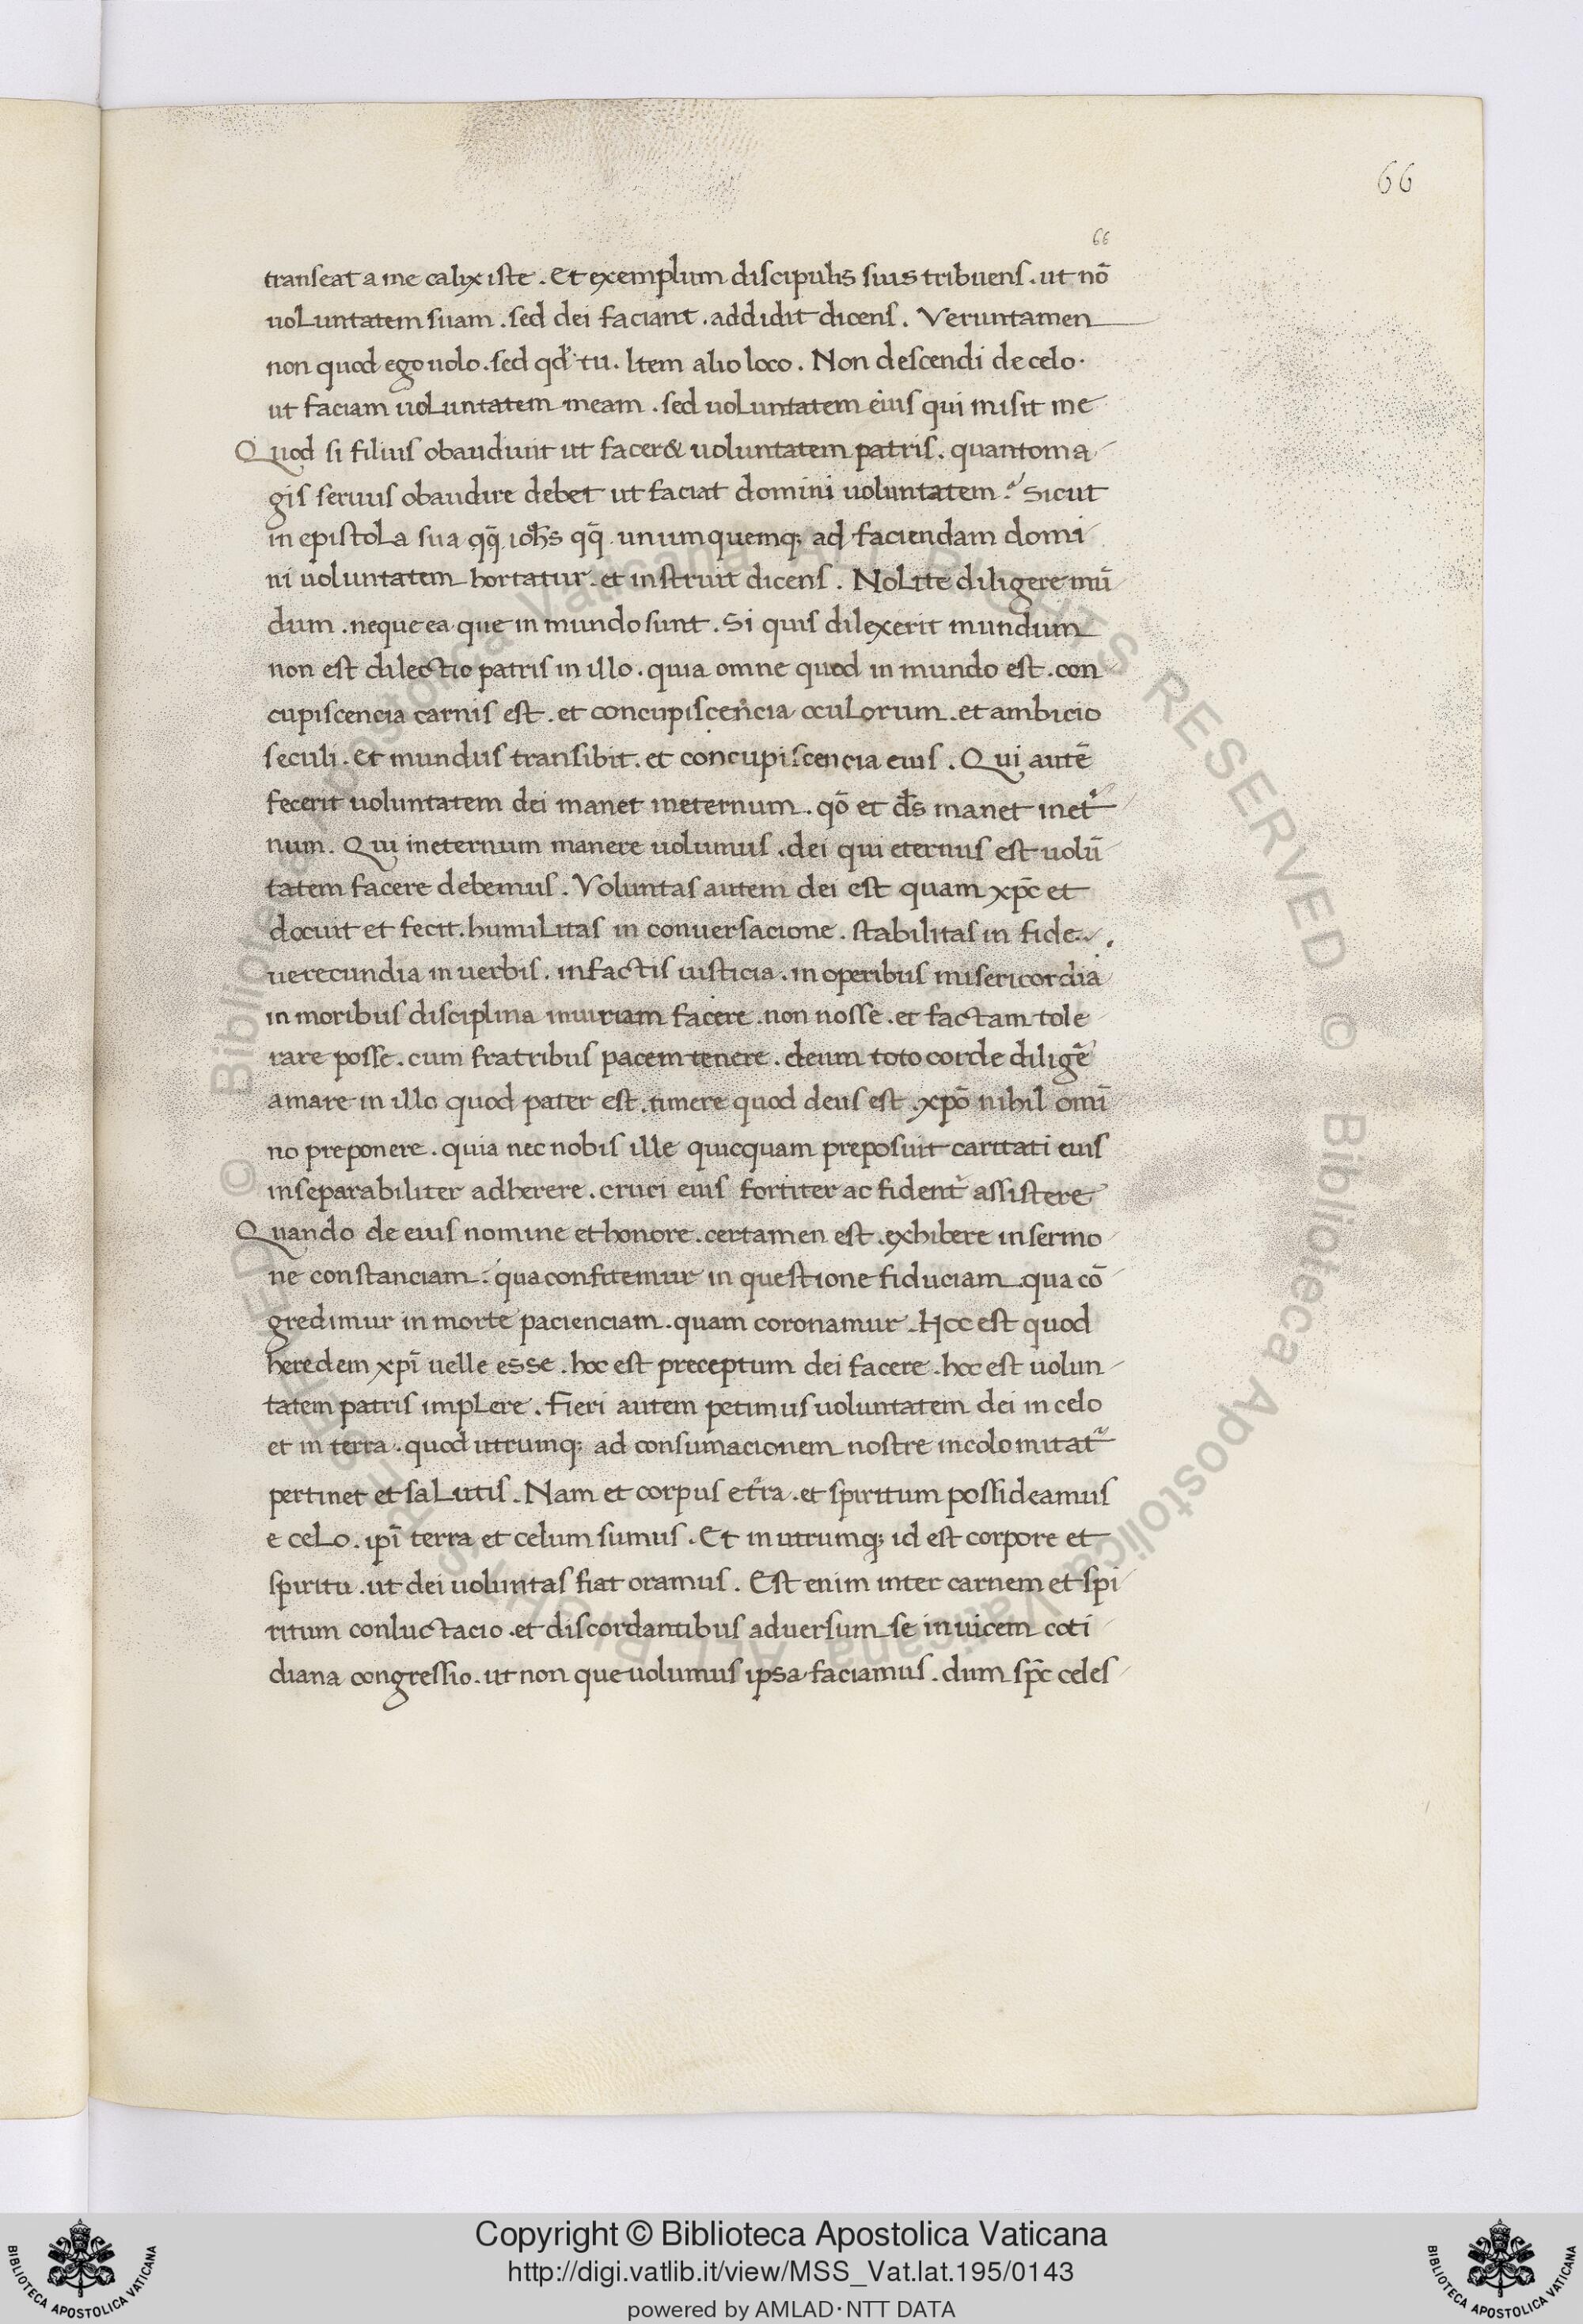 66
66
transeat a me calix iste . Et exemplum discipulis suis tribuens . ut nō
uoluntatem suam . sed dei faciant . addidit dicens . Veruntamen
non quod ego uolo . sed qd̕ tu . Item alio loco . Non descendi de celo .
ut faciam uoluntatem meam . sed uoluntatem eius qui misit me
Quod si filius obaudiuit ut facer& uoluntatem patris . quanto ma
gis seruus obaudire debet ut faciat domini uoluntatem ? Sicut
in epistola sua qq̄ ioh̄s qq̄ unumquemq; ad faciendam domi
ni uoluntatem hortatur . et instruit dicens . Nolite diligere mū
dum . neque ea que in mundo sunt . Si quis dilexerit mundum
non est dilectio patris in illo . quia omne quod in mundo est . con
cupiscencia carnis est . et concupiscencia oculorum . et ambicio
seculi . Et mundus transibit . et concupiscencia eius . Qui autē
fecerit uoluntatem dei manet ineternum . qō et d̄s manet inet̕
num . Qui ineternum manere uolumus . dei qui eternus est uolū
tatem facere debemus . Voluntas autem dei est quam xp̄c et
docuit et fecit . humilitas in conuersacione . stabilitas in fide .
uerecundia in uerbis . in factis iusticia . in operibus misericordia
in moribus disciplina iniuriam facere . non nosse . et factam tole
rare posse . cum fratribus pacem tenere . deum toto corde diligē
amare in illo quod pater est . timere quod deus est . xpō nihil omī
no preponere . quia nec nobis ille quicquam preposuit caritati eius
inseparabiliter adherere . cruci eius fortiter ac fident̕ assistere
Quando de eius nomine et honore . certamen est . exhibere in sermo
ne constanciam . qua confitemur in questione fiduciam . qua cō
gredimur in morte pacienciam . quam coronamur . Hoc est quod
heredem xpī uelle esse . hoc est preceptum dei facere . hoc est uolun
tatem patris implere . Fieri autem petimus uoluntatem dei in celo
et in terra . quod utrumq; ad consumacionem nostre incolomitat̕
pertinet et salutis . Nam et corpus et̕ra . et spiritum possideamus
e celo . ipī terra et celum sumus . Et in utrumq; id est corpore et
spiritu . ut dei uoluntas fiat oramus . Est enim inter carnem et spi
ritum conluctacio . et discordantibus aduersum se inuicem coti
diana congressio . ut non que uolumus ipsa faciamus . dum sp̄c celes
© Biblioteca Apostolica Vaticana ALL RIGHTS RESERVED © Biblioteca Apostolica Vaticana ALL RIGHTS RESERVED
Copyright © Biblioteca Apostolica Vaticana
http://digi.vatlib.it/view/MSS_Vat.lat.195/0143
powered by AMLAD·NTT DATA
BIBLIOTECA APOSTOLICA VATICANA
BIBLIOTECA APOSTOLICA VATICANA